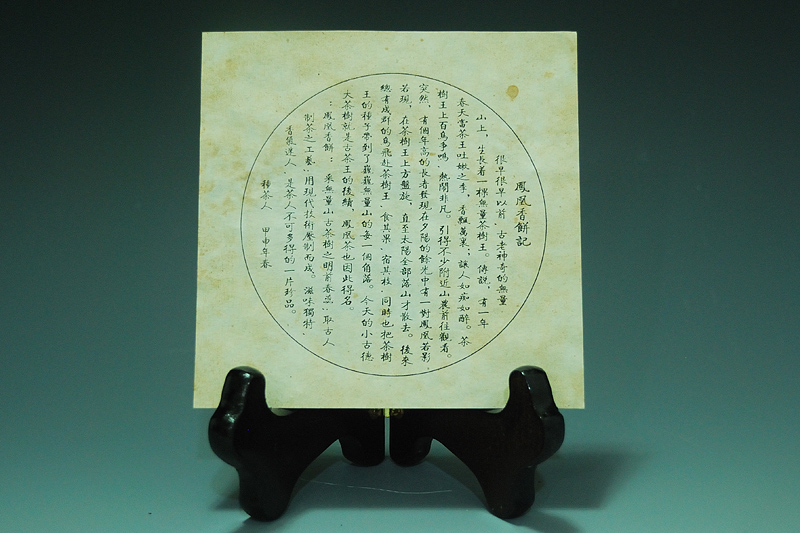 鳳凰香餅記
很早很早以前，古老神奇的無量
山上，生長着一棵無量茶樹王。傳說，有一年
春天當茶王吐嫩之季，香飄萬里；讓人如痴如醉。茶
樹王上百鳥爭鳴，熱鬧非凡。引得不少附近山農前往觀看。
突然，有個年高的長者發現在夕陽的餘光中有一對鳳凰若影
若現，在茶樹王上方盤旋，直至太陽全部落山才散去。後來
總有成群的鳥飛赴茶樹王、食其果、宿其枝，同時也把茶樹
王的種子帶到了巍巍無量山的每一個角落。今天的小古德
大茶樹就是古茶王的後續，鳳凰茶也因此得名。
：鳳凰香餅：采無量山古茶樹之明前春蕊；取古人
制茶之工藝，用現代技術壓制而成。滋味獨特，
香氣迷人，是茶人不可多得的一片珍品。
種茶人 甲申年春